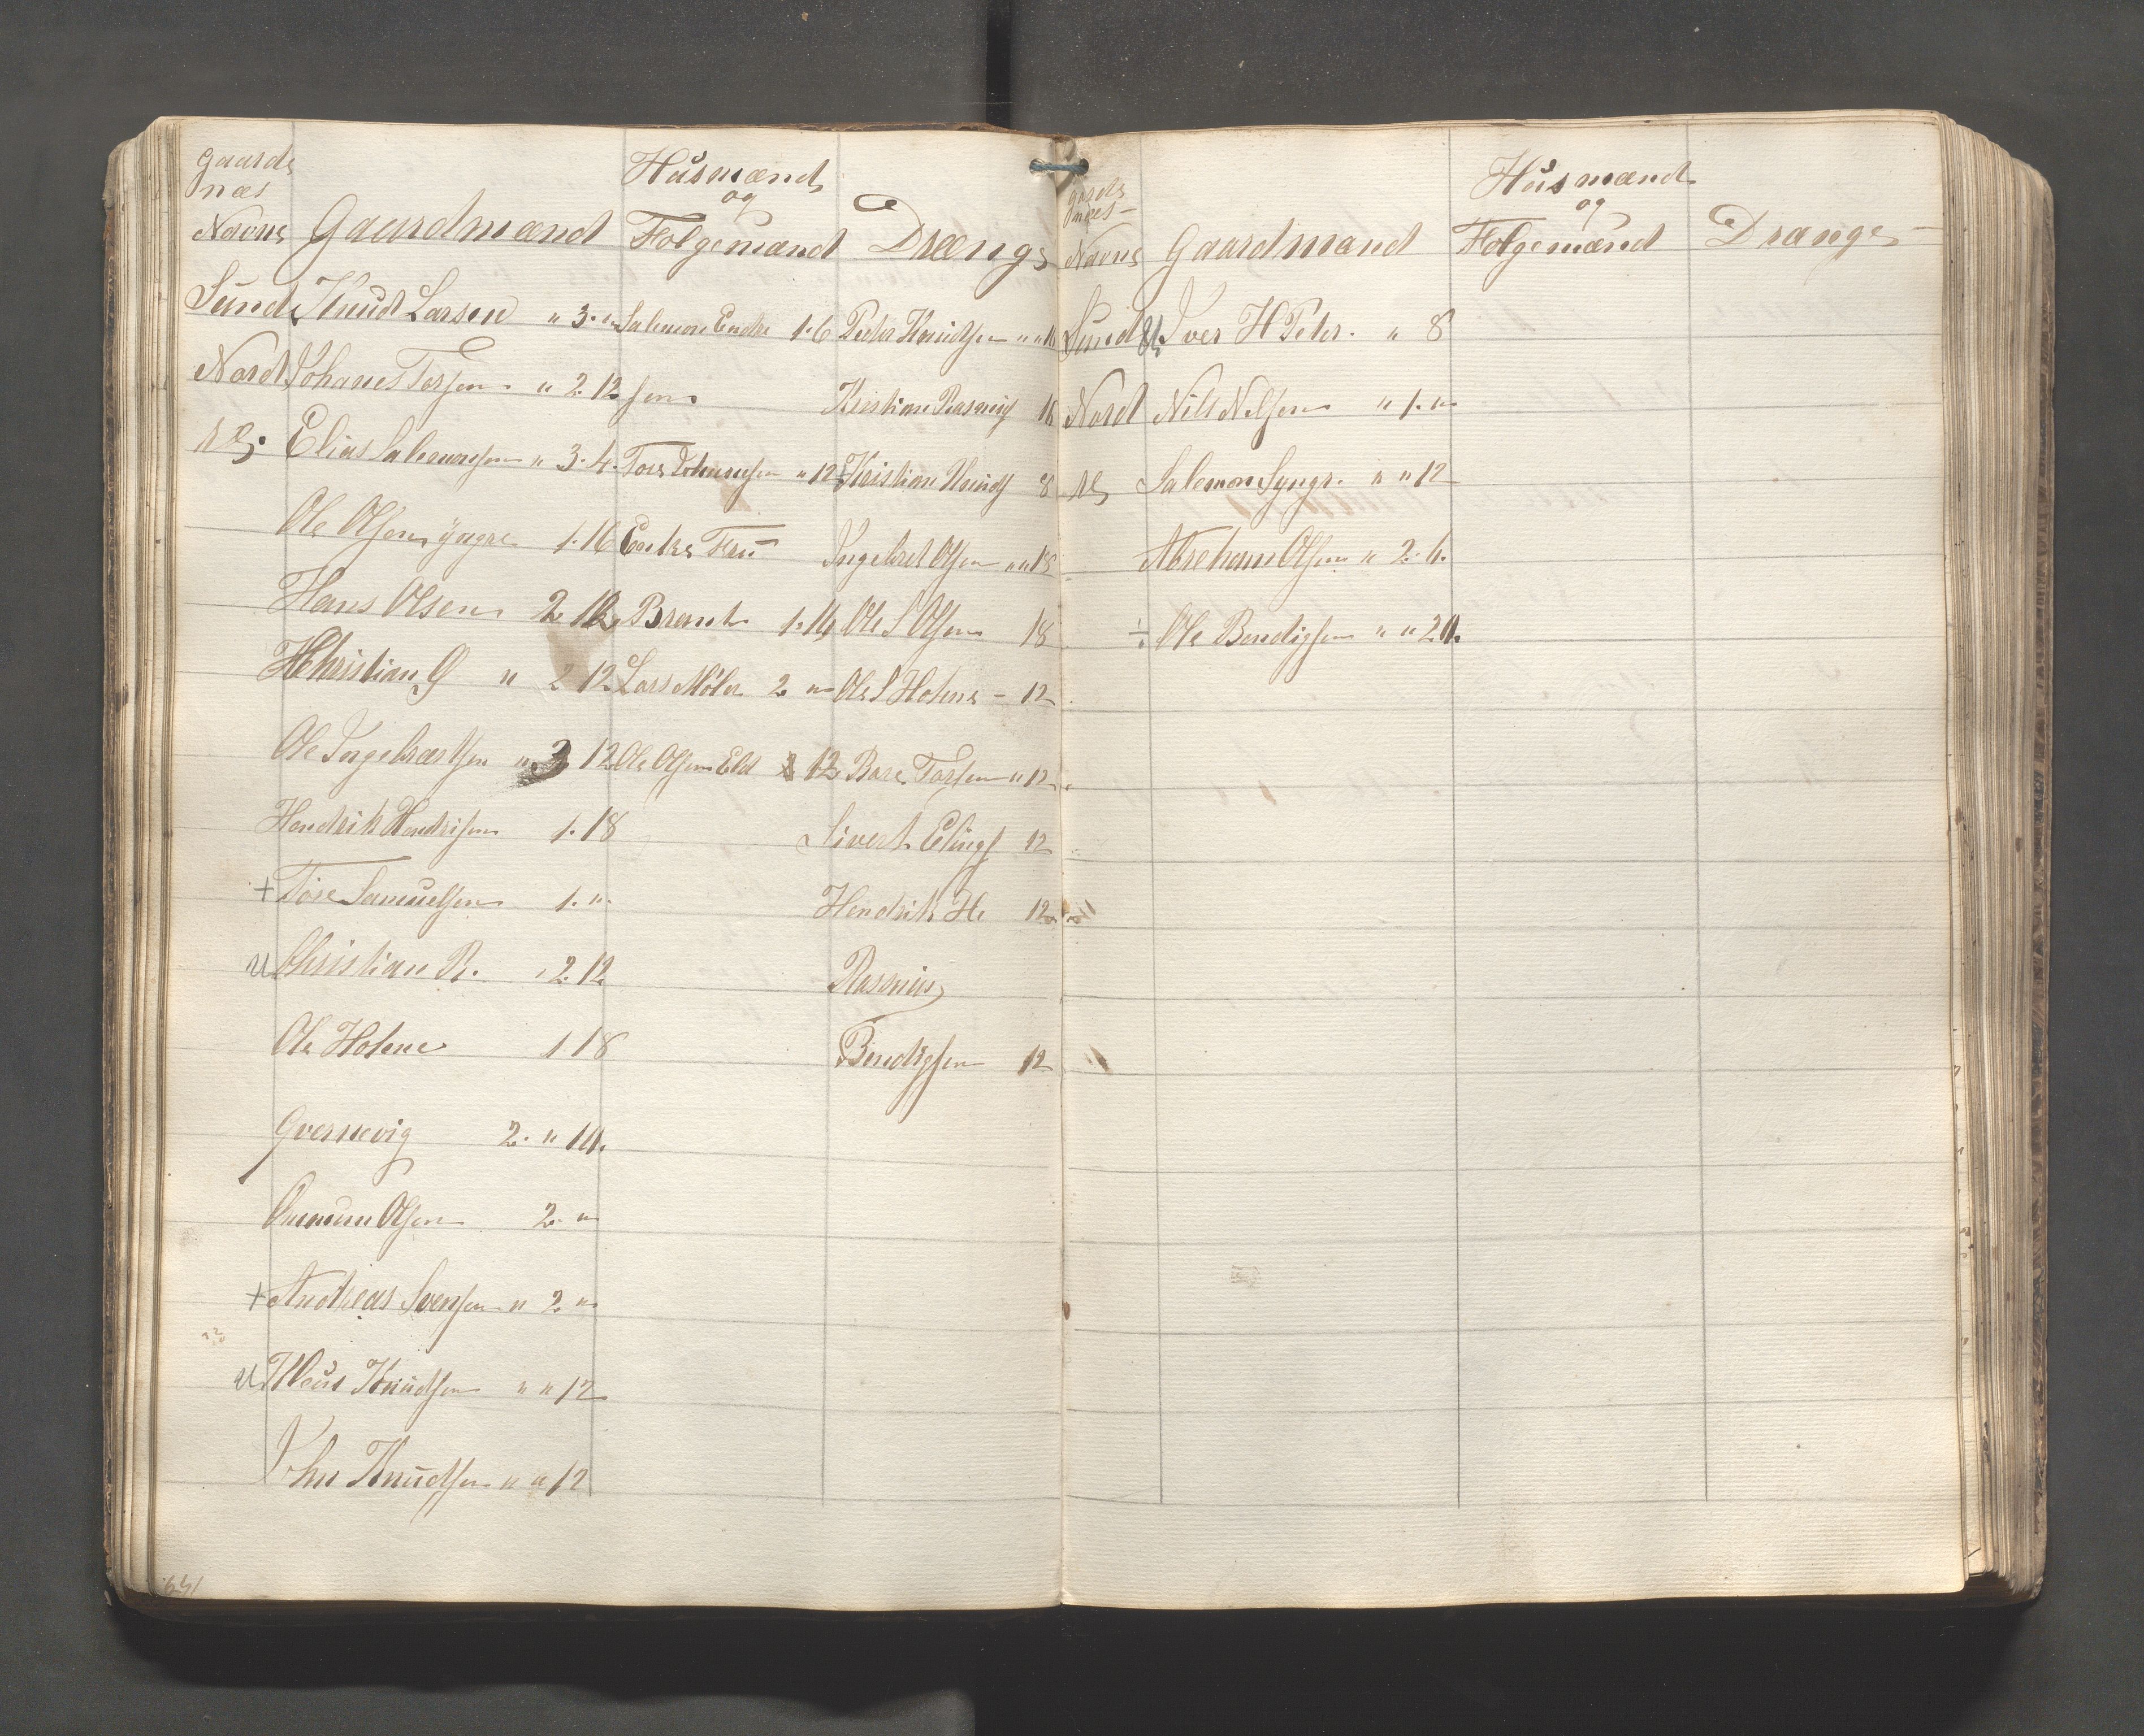 Gaards
næs
Navne Gaardmænd Husmænd og Folgemænd Drænge
Sunde Knudt Larsen " 3. " Salemon Endre 1.6 Peder Knudtsen " " 16
Nordt Johanes Torsen " 2. 12 sen Kristian Rasmus 16
Elias Salemonsen " 3. 4. Tore Johanesen " 12 Kristian Knuds 8
Ole Olsen yngre 1. 16 Enke Fru Ingebret Olsen " " 18
Hans Olsen 2 12 Brant 1. 14 Ole S Olsen 18
Christian G " 2 12 Lars Møler 2 " Ole S Holene - 12
Ole Ingebrætsen " 3 12 Ole Olsen Eld 12 Bare Torsen " 12
Hendrik Hendrisen 1. 18 Sivert Elings 12
+ Tore Samuelsen 1. " Hendrik He 12
u Christian R. " 2. 12 Rasmus
Ole Holene 1 18 Bendigsen 12
Qvernevig 2. " 14.
Ommun Olsen 2. "
+ Andreas Svensen " 2. "
u Kleus Knudsen " " 12
John Knudsen " " 12
641
Gaards
næs
Navne Gaardmænd Husmænd og Folgemænd Drænge
Sund Iver H Peter. " 8
Nordt Nils Nelsen " 1. "
Salemon Syngr. " " 12
Abreham Olsen " 2. 4.
÷ Ole Bendigsen " " 20.